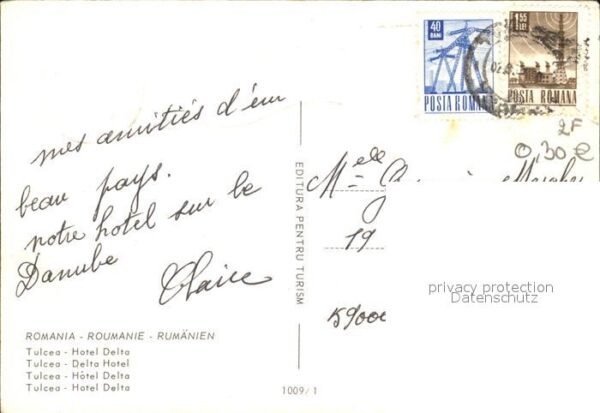 40
BANI
POSTA ROMANA
1,55
LEI
POSTA ROMANA
2F
0,30 €
mes amitiés d'un
beau pays.
notre hotel sur le
Danube
Claire
EDITURA PENTRU TURISM
Melle
19
59000
privacy protection
Datenschutz
ROMANIA - ROUMANIE - RUMÄNIEN
Tulcea - Hotel Delta
Tulcea - Delta Hotel
Tulcea - Hôtel Delta
Tulcea - Hotel Delta
1009/1